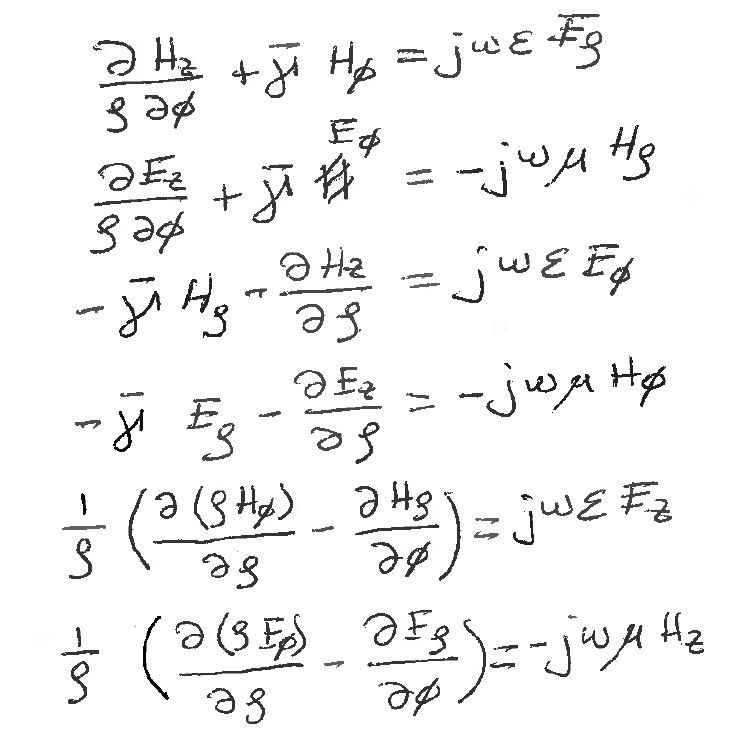 ∂Hz/ρ∂φ + γ̄ Hφ = jωε Eρ
∂Ez/ρ∂φ + γ̄ Eφ = -jωμ Hρ
-γ̄ Hρ - ∂Hz/∂ρ = jωε Eφ
-γ̄ Eρ - ∂Ez/∂ρ = -jωμ Hφ
1/ρ (∂(ρHφ)/∂ρ - ∂Hρ/∂φ) = jωε Ez
1/ρ (∂(ρEφ)/∂ρ - ∂Eρ/∂φ) = -jωμ Hz